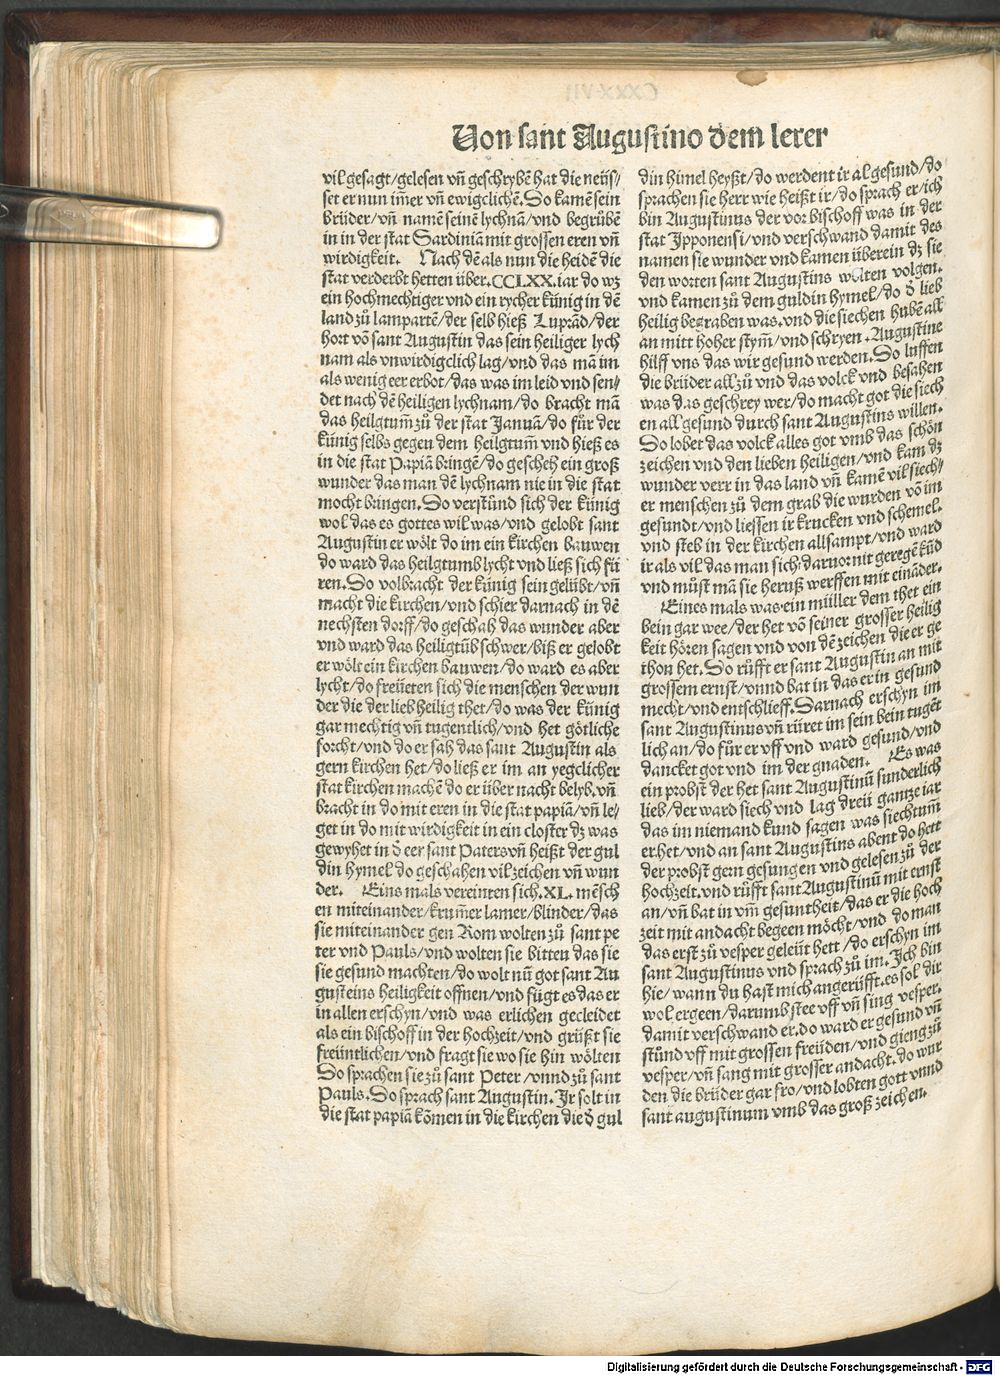 Von sant Augustino dem lerer
vil gesagt/gelesen vñ geschrybẽ hat die neüs/
set er nun im̃er vñ ewigclichẽ. Do kamẽ sein
brüder/vñ namẽ seinẽ lychnã/vnd begrübẽ
in in der stat Sardiniã mit grossen eren vñ
wirdigkeit. Nach dẽ als nun die heidẽ die
stat verderbt hetten über .CCLXX. iar do wz
ein hochmechtiger vnd ein rycher künig in dẽ
land zů lampartẽ/der selb hieß Luprãd/der
hort võ sant Augustin das sein heiliger lych
nam als vnwirdigclich lag/vnd das mã im
als wenig eer erbot/das was im leid vnd sen/
det nach dẽ heiligen lychnam/do bracht mã
das heilgtum̃ zů der stat Januã/do für der
künig selbs gegen dem heilgtum̃ vnd hieß es
in die stat Papiã bringẽ/do gescheh ein groß
wunder das man dẽ lychnam nie in die stat
mocht bringen. Do verstünd sich der künig
wol das es gottes wil was/vnd gelobt sant
Augustin er wölt do im ein kirchen bauwen
do ward das heilgtumb lycht vnd ließ sich fü
ren. Do volbracht der künig sein gelübt/vñ
macht die kirchen/vnd schier darnach in dẽ
nechsten dorff/do geschah das wunder aber
vnd ward das heiligtüb schwer/biß er gelobt
er wölt ein kirchen bauwen/do ward es aber
lycht/do freüeten sich die menschen der wun
der die der lieb heilig thet/do was der künig
gar mechtig vñ tugentlich/vnd het götliche
forcht/vnd do er sah das sant Augustin als
gern kirchen het/do ließ er im an yegclicher
stat kirchen machẽ do er über nacht belyb. vñ
bracht in do mit eren in die stat papiã/vñ le/
get in do mit wirdigkeit in ein closter dz was
gewyhet in d̃ eer sant Paters vñ heißt der gul
din hymel do geschahen vil zeichen vñ wun
der. Eins mals vereinten sich .XL. mẽsch
en miteinander/krum̃er lamer/blinder/das
sie miteinander gen Rom wolten zů sant pe
ter vnd Pauls/vnd wolten sie bitten das sie
sie gesund machten/do wolt nũ got sant Au
gusteins heiligkeit offnen/vnd fügt es das er
in allen erschyn/vnd was erlichen gecleidet
als ein bischoff in der hochzeit/vnd grüßt sie
freüntlichen/vnd fragt sie wo sie hin wölten
Do sprachen sie zů sant Peter/vnnd zů sant
Pauls. Do sprach sant Augustin. Jr solt in
die stat papiã kõmen in die kirchen die d̃ gul
din himel heyßt/do werdent ir al gesund/do
sprachen sie herr wie heißt ir/do sprach er/ich
bin Augustinus der vor bischoff was in der
stat Ipponensi/vnd verschwand damit des
namen sie wunder vnd kamen überein dz sie
den worten sant Augustins wolten volgen.
vnd kamen zů dem guldin hymel/do d̃ lieb
heilig begraben was. vnd die siechen hubẽ all
an mitt hoher stym̃/vnd schryen. Augustine
hilff vns das wir gesund werden. Do luffen
die brüder all zů vnd das volck vnd besahen
was das geschrey wer/do macht got die siech
en all gesund durch sant Augustins willen.
Do lobet das volck alles got vmb das schön
zeichen vnd den lieben heiligen/vnd kam dz
wunder verr in das land vñ kamẽ vil siech/
er menschen zů dem grab die wurden võ im
gesundt/vnd liessen ir krucken vnd schemel.
vnd steb in der kirchen allsampt/vnd ward
ir als vil das man sich darvor nit geregẽ kũd
vnd můst mã sie heruß werffen mit einãder.
Eines mals was ein müller dem thet ein
bein gar wee/der het võ seiner grosser heilig
keit hören sagen vnd von dẽ zeichen die er ge
thon het. Do růfft er sant Augustin an mit
grossem ernst/vnnd bat in das er in gesund
mecht/vnd entschlieff. Darnach erschyn im
sant Augustinus vñ rüret im sein bein tugẽt
lich an/do für er vff vnd ward gesund/vnd
dancket got vnd im der gnaden. Es was
ein probst der het sant Augustinũ sunderlich
lieb/der ward siech vnd lag dreü gantze iar
das im niemand kund sagen was siechtum̃
er het/vnd an sant Augustins abent do hett
der probst gern gesungen vnd gelesen zů der
hochzeit. vnd růfft sant Augustinũ mit ernst
an/vñ bat in vm̃ gesuntheit/das er die hoch
zeit mit andacht begeen möcht/vnd do man
das erst zů vesper geleüt hett/do erschyn im
sant Augustinus vnd sprach zů im. Ich bin
hie/wann du hast mich angerüfft. es sol dir
wol ergeen/darumb stee vff vñ sing vesper.
damit verschwand er. do ward er gesund vñ
stůnd vff mit grossen freüden/vnd gieng zů
vesper/vñ sang mit grosser andacht. do wur
den die brüder gar fro/vnd lobten gott vnnd
sant augustinum vmb das groß zeichen.
Digitalisierung gefördert durch die Deutsche Forschungsgemeinschaft - DFG